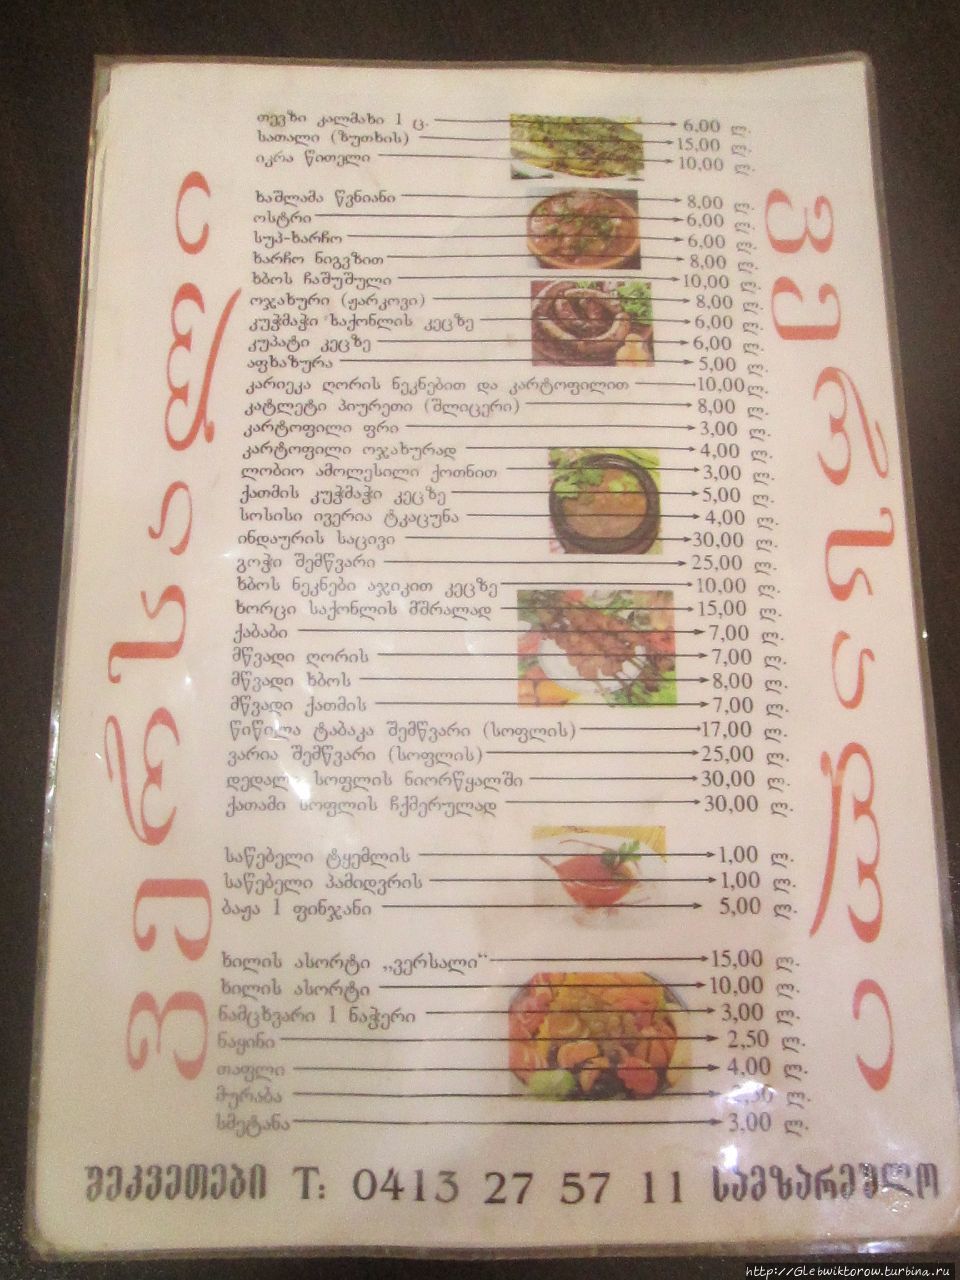 თევზი კალმახი 1 ც. 6,00 ლ.
სათალი (ზუთხის) 15,00 ლ.
იკრა წითელი 10,00 ლ.
ხაშლამა წვნიანი 8,00 ლ.
ოსტრი 6,00 ლ.
სუპ-ხარჩო 6,00 ლ.
ხარჩო ნიგვზით 8,00 ლ.
ხბოს ჩაშუშული 10,00 ლ.
ოჯახური (ჟარკოვი) 8,00 ლ.
კუჭმაჭი საქონლის კეცზე 6,00 ლ.
კუპატი კეცზე 6,00 ლ.
აფხაზურა 5,00 ლ.
კარიეკა ღორის ნეკნებით და კარტოფილით 10,00 ლ.
კატლეტი პიურეთი (შლიცერი) 8,00 ლ.
კარტოფილი ფრი 3,00 ლ.
კარტოფილი ოჯახურად 4,00 ლ.
ლობიო ამოლესილი ქოთნით 3,00 ლ.
ქათმის კუჭმაჭი კეცზე 5,00 ლ.
სოსისი ივერია ტკაცუნა 4,00 ლ.
ინდაურის საცივი 30,00 ლ.
გოჭი შემწვარი 25,00 ლ.
ხბოს ნეკნები აჯიკით კეცზე 10,00 ლ.
ხორცი საქონლის მშრალად 15,00 ლ.
ქაბაბი 7,00 ლ.
მწვადი ღორის 7,00 ლ.
მწვადი ხბოს 8,00 ლ.
მწვადი ქათმის 7,00 ლ.
წიწილა ტაბაკა შემწვარი (სოფლის) 17,00 ლ.
ვარია შემწვარი (სოფლის) 25,00 ლ.
სოფლის ნიორწყალში 30,00 ლ.
ქათამი სოფლის ჩქმერულად 30,00 ლ.
საწებელი ტყემლის 1,00 ლ.
საწებელი პამიდვრის 1,00 ლ.
ბაჟა 1 ფინჯანი 5,00 ლ.
ხილის ასორტი „ვერსალი“ 15,00 ლ.
ხილის ასორტი 10,00 ლ.
ნამცხვარი 1 ნაჭერი 3,00 ლ.
ნაყინი 2,50 ლ.
თაფლი 4,00 ლ.
მურაბა ლ.
სმეტანა 3,00 ლ.
ვერსალი
ვერსალი
შეკვეთები T: 0413 27 57 11 სამზარეულო
http://Glebwiktorow.turbina.ru